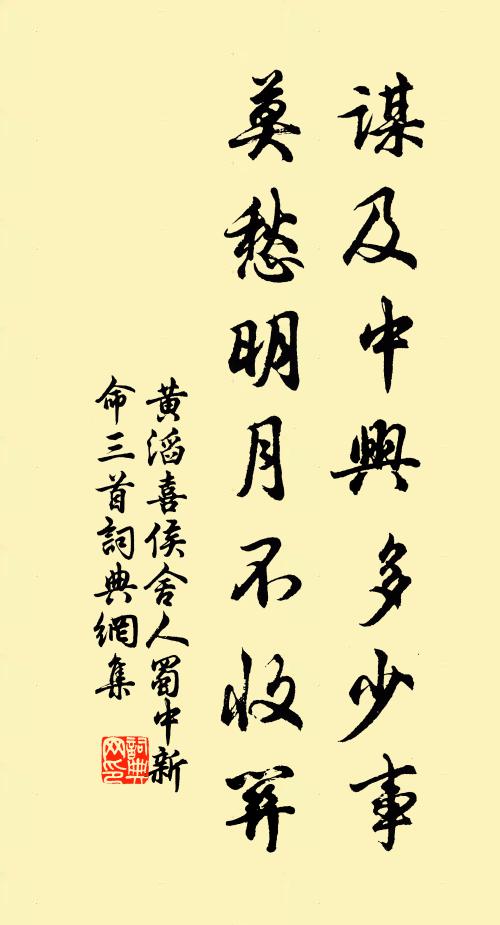 謀及中興多少事
莫愁明月不收關
黃滔喜侯舍人蜀中新
命三首詞典網集
詞典
网印